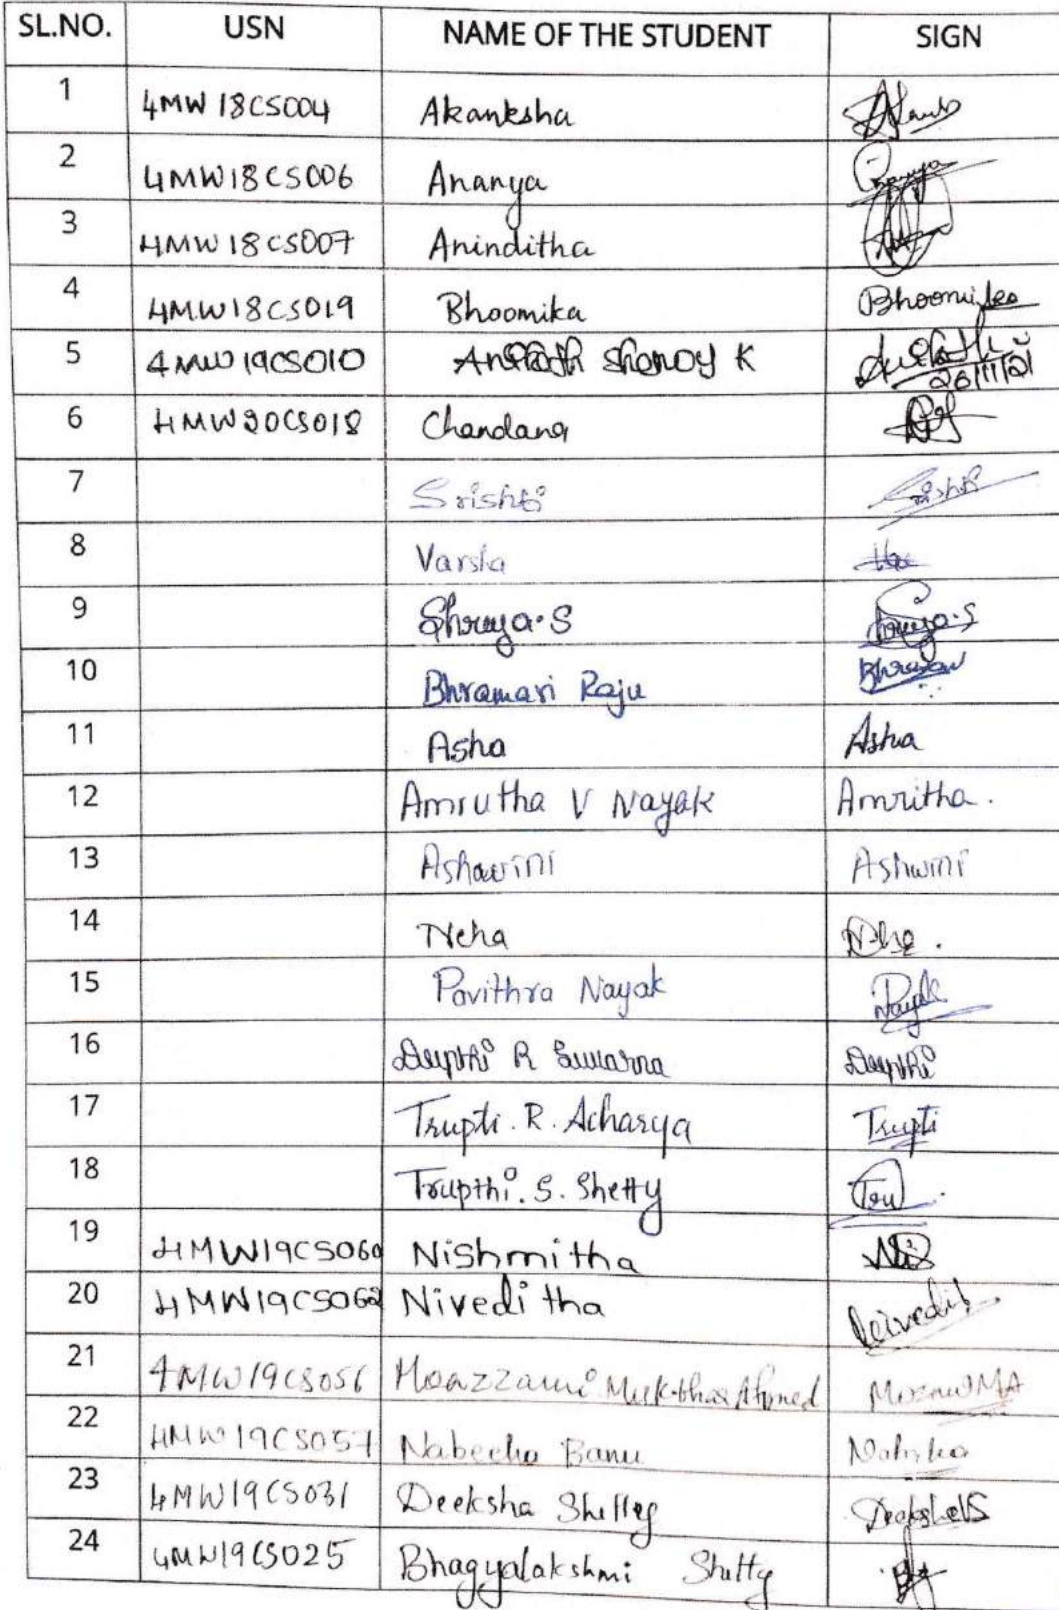 SL.NO. USN NAME OF THE STUDENT SIGN
1 4MW18CS004 Akanksha
2 4MW18CS006 Ananya
3 4MW18CS007 Aninditha
4 4MW18CS019 Bhoomika Bhoomika
5 4MW19CS010 Shenoy K 26/11/21
6 4MW20CS018 Chandana
7 Srishti Srishti
8 Varsha
9 Shreya.S Shreya.S
10 Bhramari Raju
11 Asha Asha
12 Amrutha V Nayak Amritha.
13 Ashawini Ashwini
14 Neha
15 Pavithra Nayak Nayak
16 Deepthi R Suvarna Deepthi
17 Trupti.R.Acharya Trupti
18 Trupthi.S.Shetty Tru
19 4MW19CS060 Nishmitha
20 4MW19CS062 Niveditha
21 4MW19CS056 Ahmed
22 4MW19CS057 Nabeeha Banu
23 4MW19CS031 Deeksha Shettey
24 4MW19CS025 Bhagyalakshmi Shetty